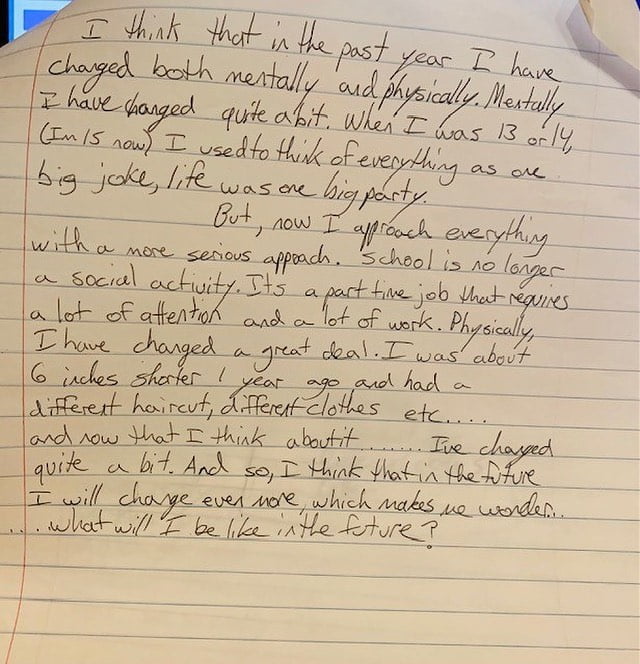 I think that in the past year I have
changed both mentally and physically. Mentally
I have changed quite a bit. When I was 13 or 14,
(Im 15 now) I used to think of everything as one
big joke, life was one big party.
But, now I approach everything
with a more serious appoach. School is no longer
a social activity. Its a part time job that requires
a lot of attention and a lot of work. Physically,
I have changed a great deal. I was about
6 inches shorter 1 year ago and had a
different haircut, different clothes etc.....
and now that I think about it ....... I've changed
quite a bit. And so, I think that in the future
I will change even more, which makes me wonder...
.... what will I be like in the future?